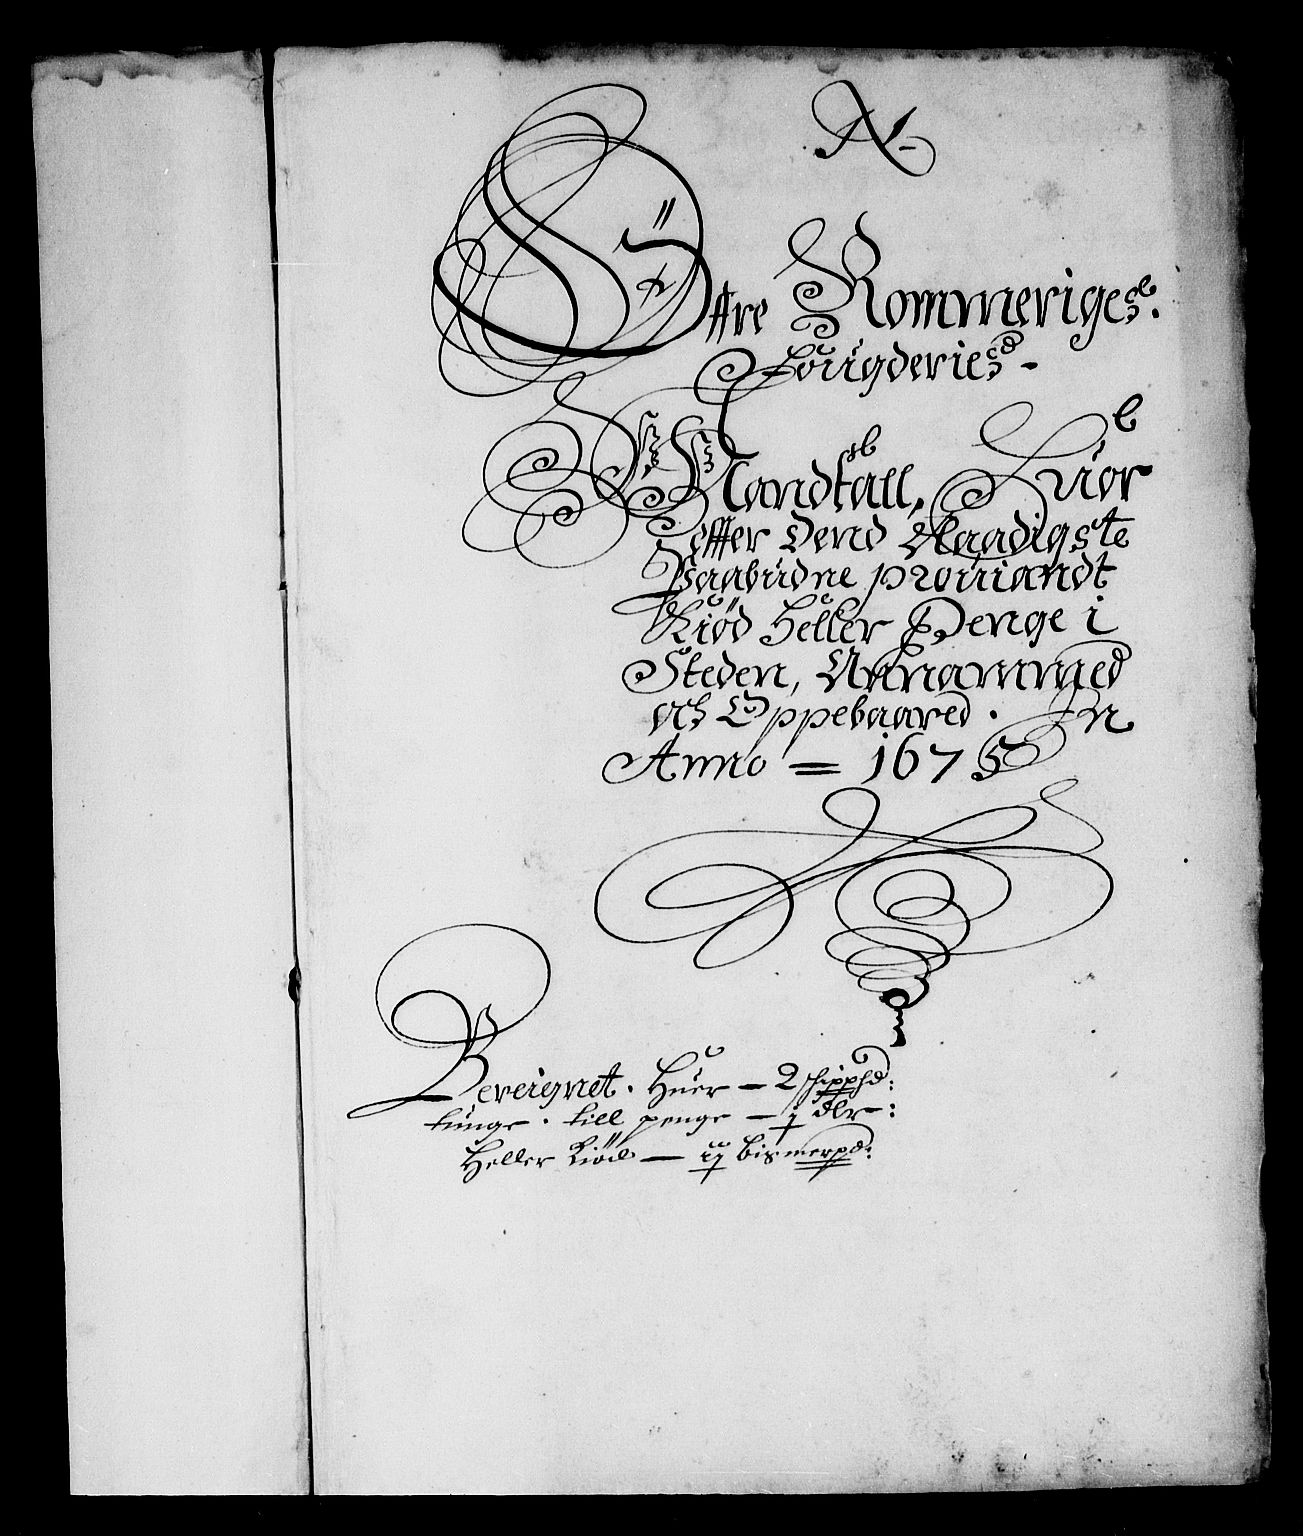 N
Øffre Rommeriges
Fougderies
Mandtall, Huor
effter dend Naadigste
Paabudne prouiandt
Kiød Heller Penge i
Steden, Annammed
och Oppebaared. Pr
Anno = 1675
Bereignet. Huer — 2 schippd:
tunge. till penge — j dlr:
Heller Kiød — ij bismerpd: